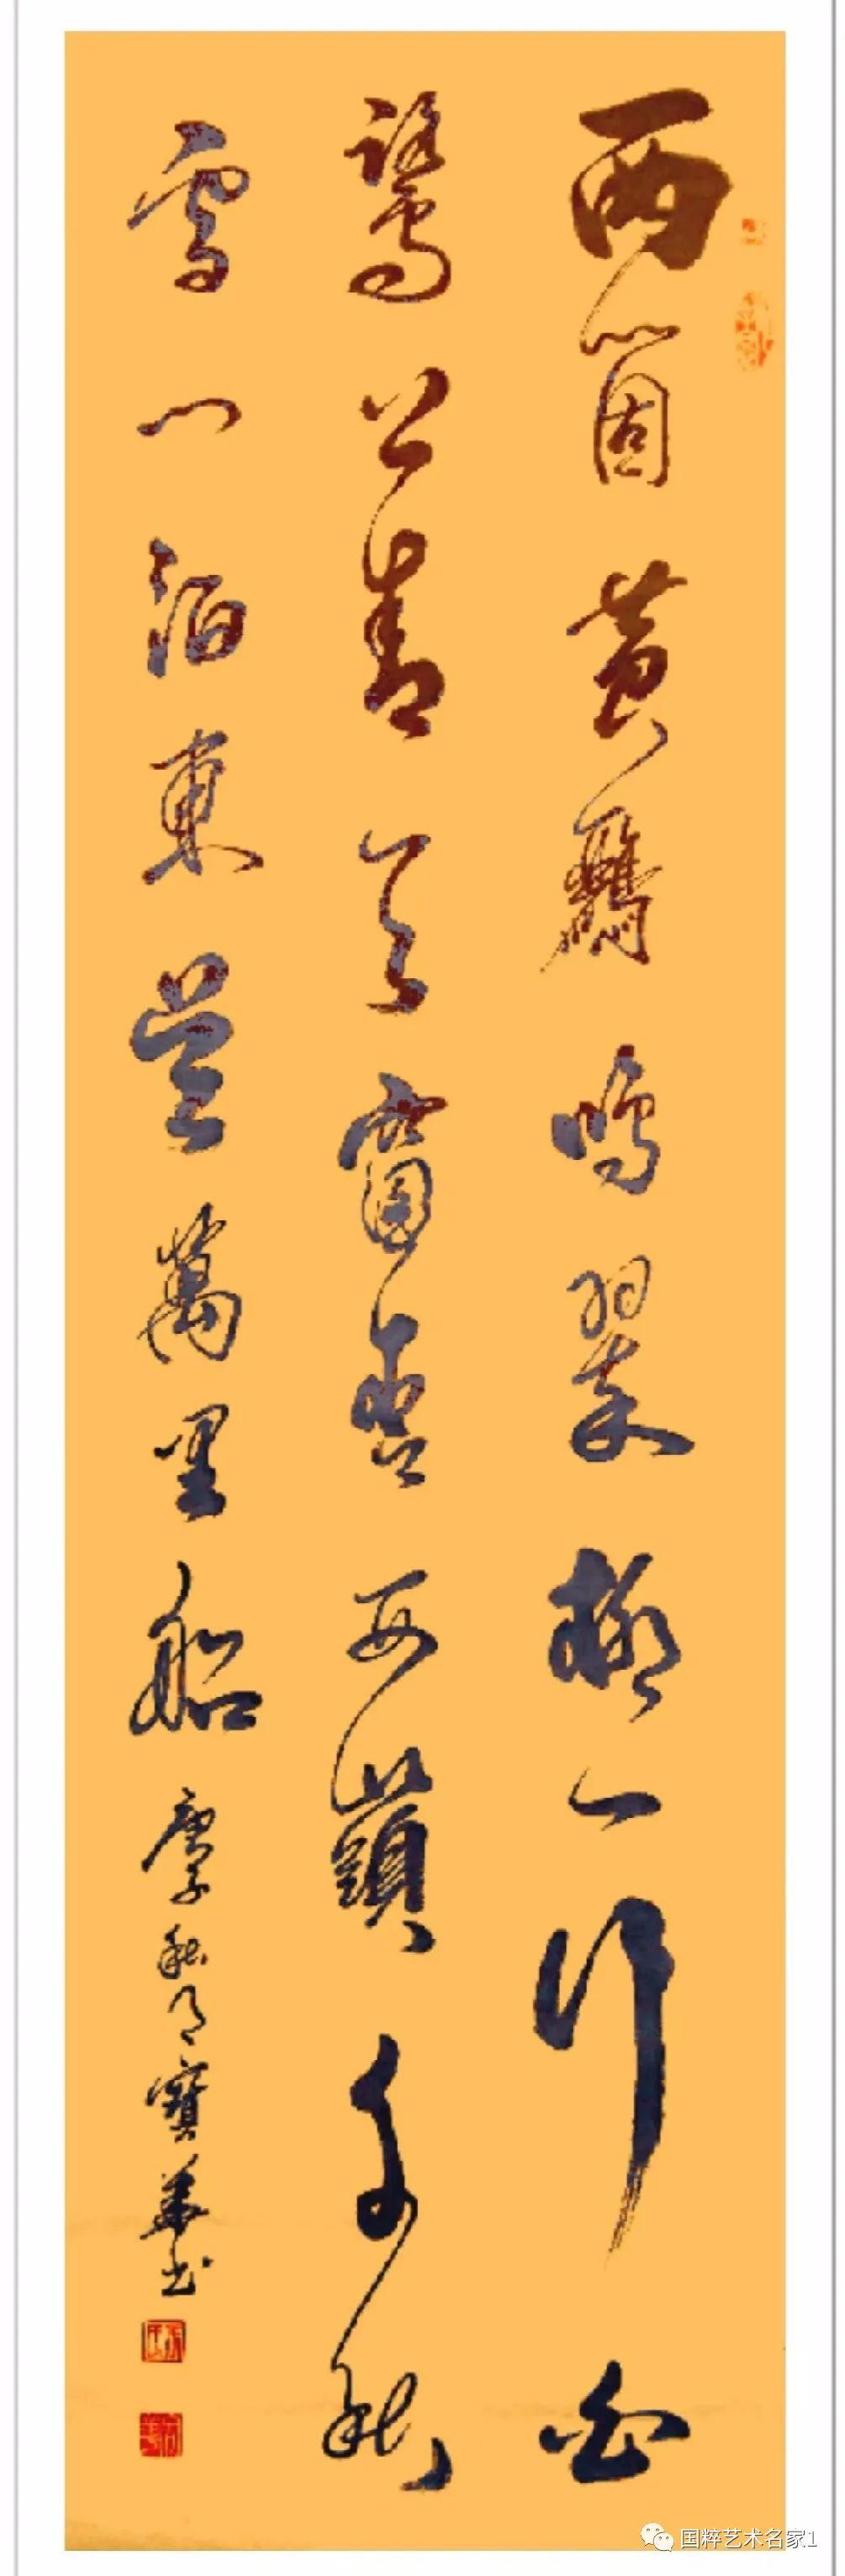 兩箇黃鸝鳴翠柳一行白
鷺上青天窗含西嶺千秋
雪門泊東吳萬里船 庚子秋月寶華书
国粹艺术名家1